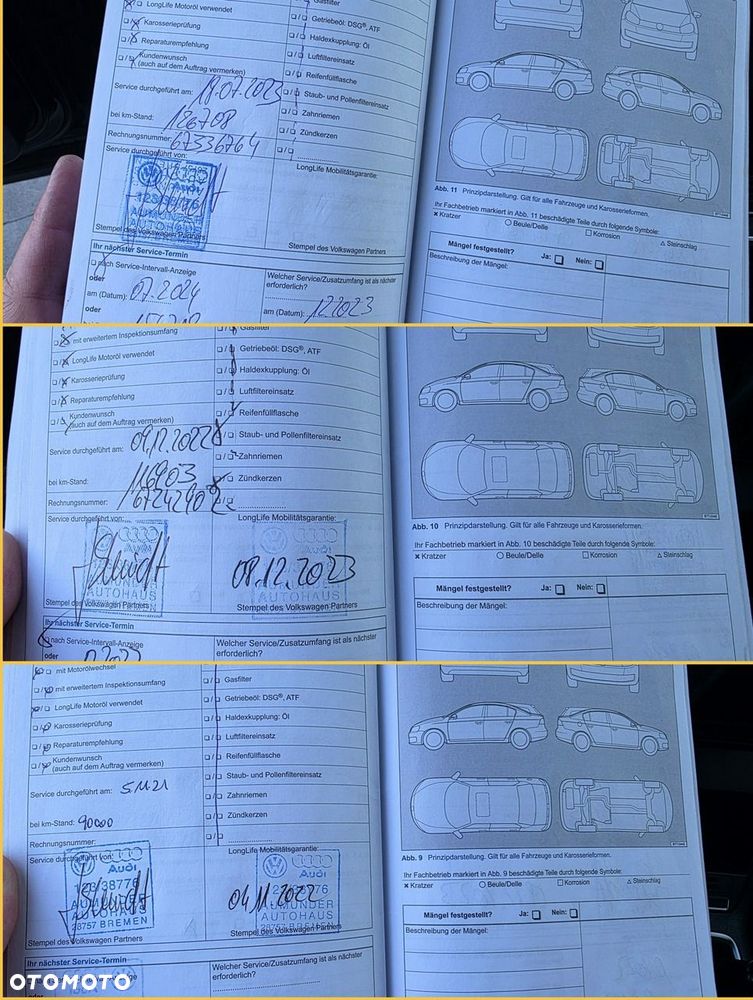 LongLife Motoröl verwendet
Karosserieprüfung
Reparaturempfehlung
Kundenwunsch
(auch auf dem Auftrag vermerken)
Service durchgeführt am: 19.07.2023
bei km-Stand: 126708
Rechnungsnummer: 67336764
Service durchgeführt von:
Audi
Stempel des Volkswagen Partners
Getriebeöl: DSG®, ATF
Haldexkupplung: Öl
Luftfiltereinsatz
Reifenfüllflasche
Staub- und Pollenfiltereinsatz
Zahnriemen
Zündkerzen
LongLife Mobilitätsgarantie:
Stempel des Volkswagen Partners
Ihr nächster Service-Termin
nach Service-Intervall-Anzeige
oder
am (Datum): 07.2024
oder
Welcher Service/Zusatzumfang ist als nächster
erforderlich?
am (Datum): 12.2023
Abb. 11 Prinzipdarstellung. Gilt für alle Fahrzeuge und Karosserieformen.
Ihr Fachbetrieb markiert in Abb. 11 beschädigte Teile durch folgende Symbole:
Kratzer Beule/Delle Korrosion Steinschlag
Mängel festgestellt? Ja: Nein:
Beschreibung der Mängel:
mit erweitertem Inspektionsumfang
LongLife Motoröl verwendet
Karosserieprüfung
Reparaturempfehlung
Kundenwunsch
(auch auf dem Auftrag vermerken)
Service durchgeführt am: 09.12.2022
bei km-Stand: 116903
Rechnungsnummer:
Service durchgeführt von:
AUTOHAUS
Stempel des Volkswagen Partners
Gasfilter
Getriebeöl: DSG®, ATF
Haldexkupplung: Öl
Luftfiltereinsatz
Reifenfüllflasche
Staub- und Pollenfiltereinsatz
Zahnriemen
Zündkerzen
LongLife Mobilitätsgarantie:
08.12.2023
AUTOHAUS
Stempel des Volkswagen Partners
Ihr nächster Service-Termin
nach Service-Intervall-Anzeige
oder
Welcher Service/Zusatzumfang ist als nächster
erforderlich?
Abb. 10 Prinzipdarstellung. Gilt für alle Fahrzeuge und Karosserieformen.
Ihr Fachbetrieb markiert in Abb. 10 beschädigte Teile durch folgende Symbole:
Kratzer Beule/Delle Korrosion Steinschlag
Mängel festgestellt? Ja: Nein:
Beschreibung der Mängel:
mit Motorölwechsel
mit erweitertem Inspektionsumfang
LongLife Motoröl verwendet
Karosserieprüfung
Reparaturempfehlung
Kundenwunsch
(auch auf dem Auftrag vermerken)
Service durchgeführt am: 5.11.21
bei km-Stand: 90000
Rechnungsnummer:
Service durchgeführt von:
Audi
123/38776
AUMUNDER
AUTOHAUS
28757 BREMEN
Stempel des Volkswagen Partners
Gasfilter
Getriebeöl: DSG®, ATF
Haldexkupplung: Öl
Luftfiltereinsatz
Reifenfüllflasche
Staub- und Pollenfiltereinsatz
Zahnriemen
Zündkerzen
LongLife Mobilitätsgarantie:
Audi
04.11.2022
AUMUNDER
AUTOHAUS
28757 BREMEN
Stempel des Volkswagen Partners
Ihr nächster Service-Termin
oder
Welcher Service/Zusatzumfang ist als nächster
erforderlich?
Abb. 9 Prinzipdarstellung. Gilt für alle Fahrzeuge und Karosserieformen.
Ihr Fachbetrieb markiert in Abb. 9 beschädigte Teile durch folgende Symbole:
Kratzer Beule/Delle Korrosion Steinschlag
Mängel festgestellt? Ja: Nein:
Beschreibung der Mängel:
OTOMOTO